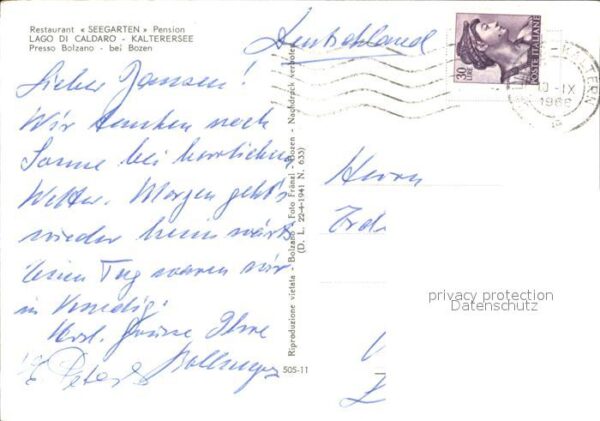 Restaurant « SEEGARTEN » Pension
LAGO DI CALDARO - KALTERERSEE
Presso Bolzano - bei Bozen
Deutschland
30 LIRE
POSTE ITALIANE
KALTERN
IX
1966
Lieber Jansen!
Wir tanken noch
Sonne bei herrlichem
Wetter. Morgen geht's
wieder heimwärts
einen Tag waren wir
in Venedig.
Herzl. Grüsse Ihre
Riproduzione vietata - Bolzano - Foto Fränzl - Bozen - Nachdruck verboten
(D. L. 22-4-1941 N. 633)
505-11
Herrn
privacy protection
Datenschutz